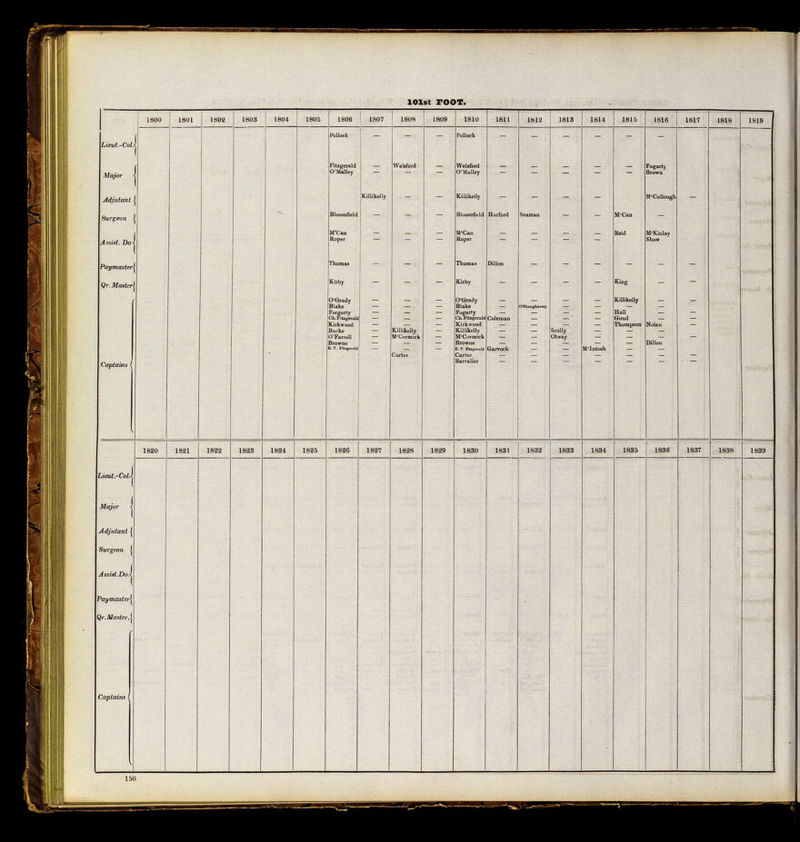 101st FOOT.
1800 1801 1802 1803 1804 1805 1806 1807 1808 1809 1810 1811 1812 1813 1814 1815 1816 1817 1818 1819
Lieut.-Col. Pollock — — — Pollock — — — — — —
Major Fitzgerald — Welsford — Welsford — — — — — Fogarty
O'Malley — — — O'Malley — — — — — Brown
Adjutant Killikelly — — Killikelly — — — — — M'Cullough —
Surgeon Bloomfield — — — Bloomfield Harford Seaman — — M'Can —
Assist. Do M'Can — — — M'Can — — — — Reid M'Kinlay
Roper — — — Roper — — — — Shaw
Paymaster Thomas — — — Thomas Dillon — — — — — —
Qr. Master Kirby — — — Kirby — — — — King — —
Captains
O'Grady — — — O'Grady — — — — Killikelly — —
Blake — — — Blake — O'Shaughnessy — — — —
Forgarty — — — Fogarty — — — — Hall — —
Ch. Fitzgerald — — — Ch. Fitzgerald Coleman — — — Girod — —
Kirkwood — — — Kirkwood — — — — Thompson Nolan —
Burke — Killikelly — Killikelly — — Scully — — —
O'Farrell — M'Cormick — M'Cormick — — Otway — — — —
Browne — — — Browne — — — — — Dillon
E. T. Fitzgerald — — — E. T. Fitzgerald Garvock — — M'Intosh — —
Carter — Carter — — — — — — —
Barralier — — — — — — —
1820 1821 1822 1823 1824 1825 1826 1827 1828 1829 1830 1831 1832 1833 1834 1835 1836 1837 1838 1839
Lieut.-Col.
Major
Adjutant
Surgeon
Assist. Do.
Paymaster
Qr. Master.
Captains
150